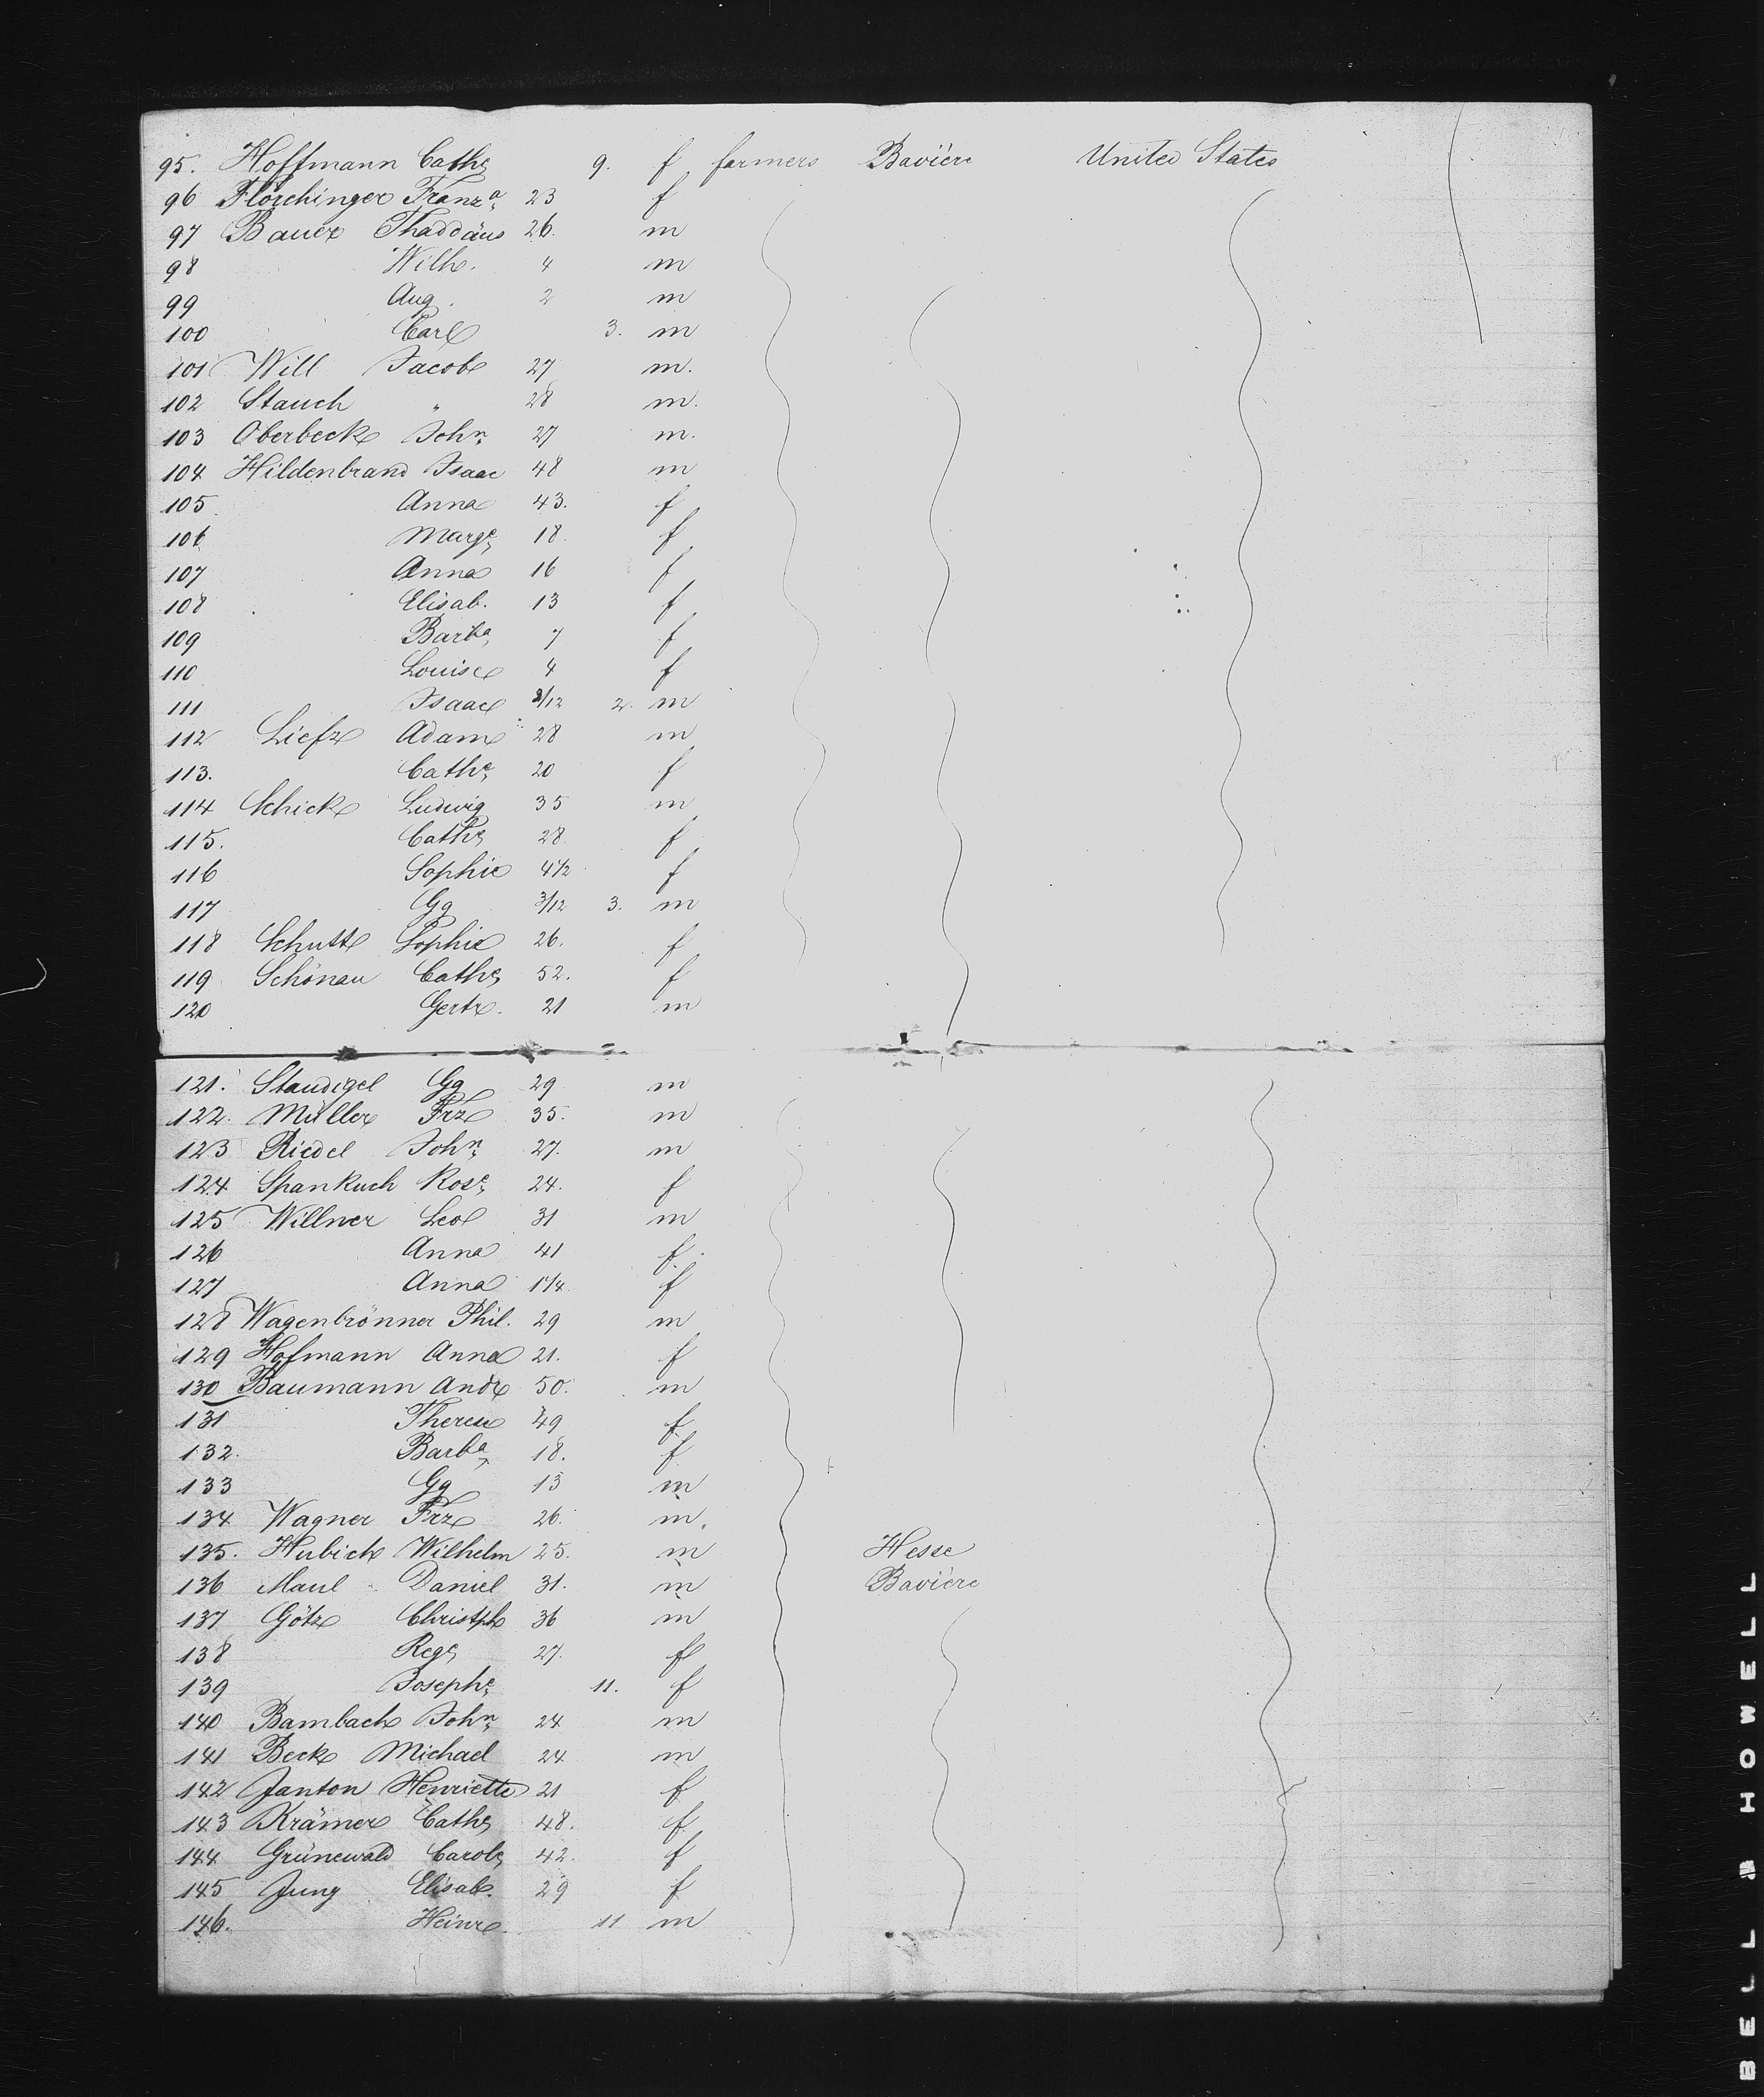 95. Hoffmann Cathe 9. f farmers Bavière United States
96 Flörchinger Franza 23 f
97 Bauer Thaddäus 26. m
98 Wilh. 4 m
99 Aug. 2 m
100 Carl 3. m
101 Will Jacob 27 m.
102 Stauch " 28 m.
103 Oberbeck John 27 m.
104 Hildenbrand Isaac 48 m
105 Anna 43. f
106 Marge 18. f
107 Anna 16 f
108 Elisab. 13 f
109 Barba 7 f
110 Louise 4 f
111 Isaac 2/12 2. m
112 Liefz Adam 28 m
113. Cathe 20 f
114 Schick Ludwig 35 m
115. Cathe 28. f
116 Sophie 4 1/2 f
117 Gg 3/12 3. m
118 Schutt Sophie 26. f
119 Schönau Cathe 52. f
120 Gertr. 21 m
121. Staudigel Gg 29 m
122. Müller Frz 35. m
123 Riedel John 27. m
124 Spankuch Rose 24. f
125 Willner Leo 31 m
126 Anna 41 f.
127 Anna 1 1/4 f
128 Wagenbrönner Phil. 29 m
129 Hofmann Anna 21. f
130 Baumann Andr 50. m
131 Therese 49 f
132. Barba 18. f
133 Gg 13 m
134 Wagner Frz 26. m.
135. Hubich Wilhelm 25. m Hesse
136 Maul Daniel 31. m Bavière
137 Götz Christph 36 m
138 Rege 27. f
139 Josephe 11. f
140 Bambach John 24 m
141 Beck Michael 24 m
142 Janton Henriette 21 f
143 Krämer Cathe 48. f
144 Grünewald Carole 42. f
145 Jung Elisab. 29 f
146. Heinr. 11 m
BELL & HOWELL